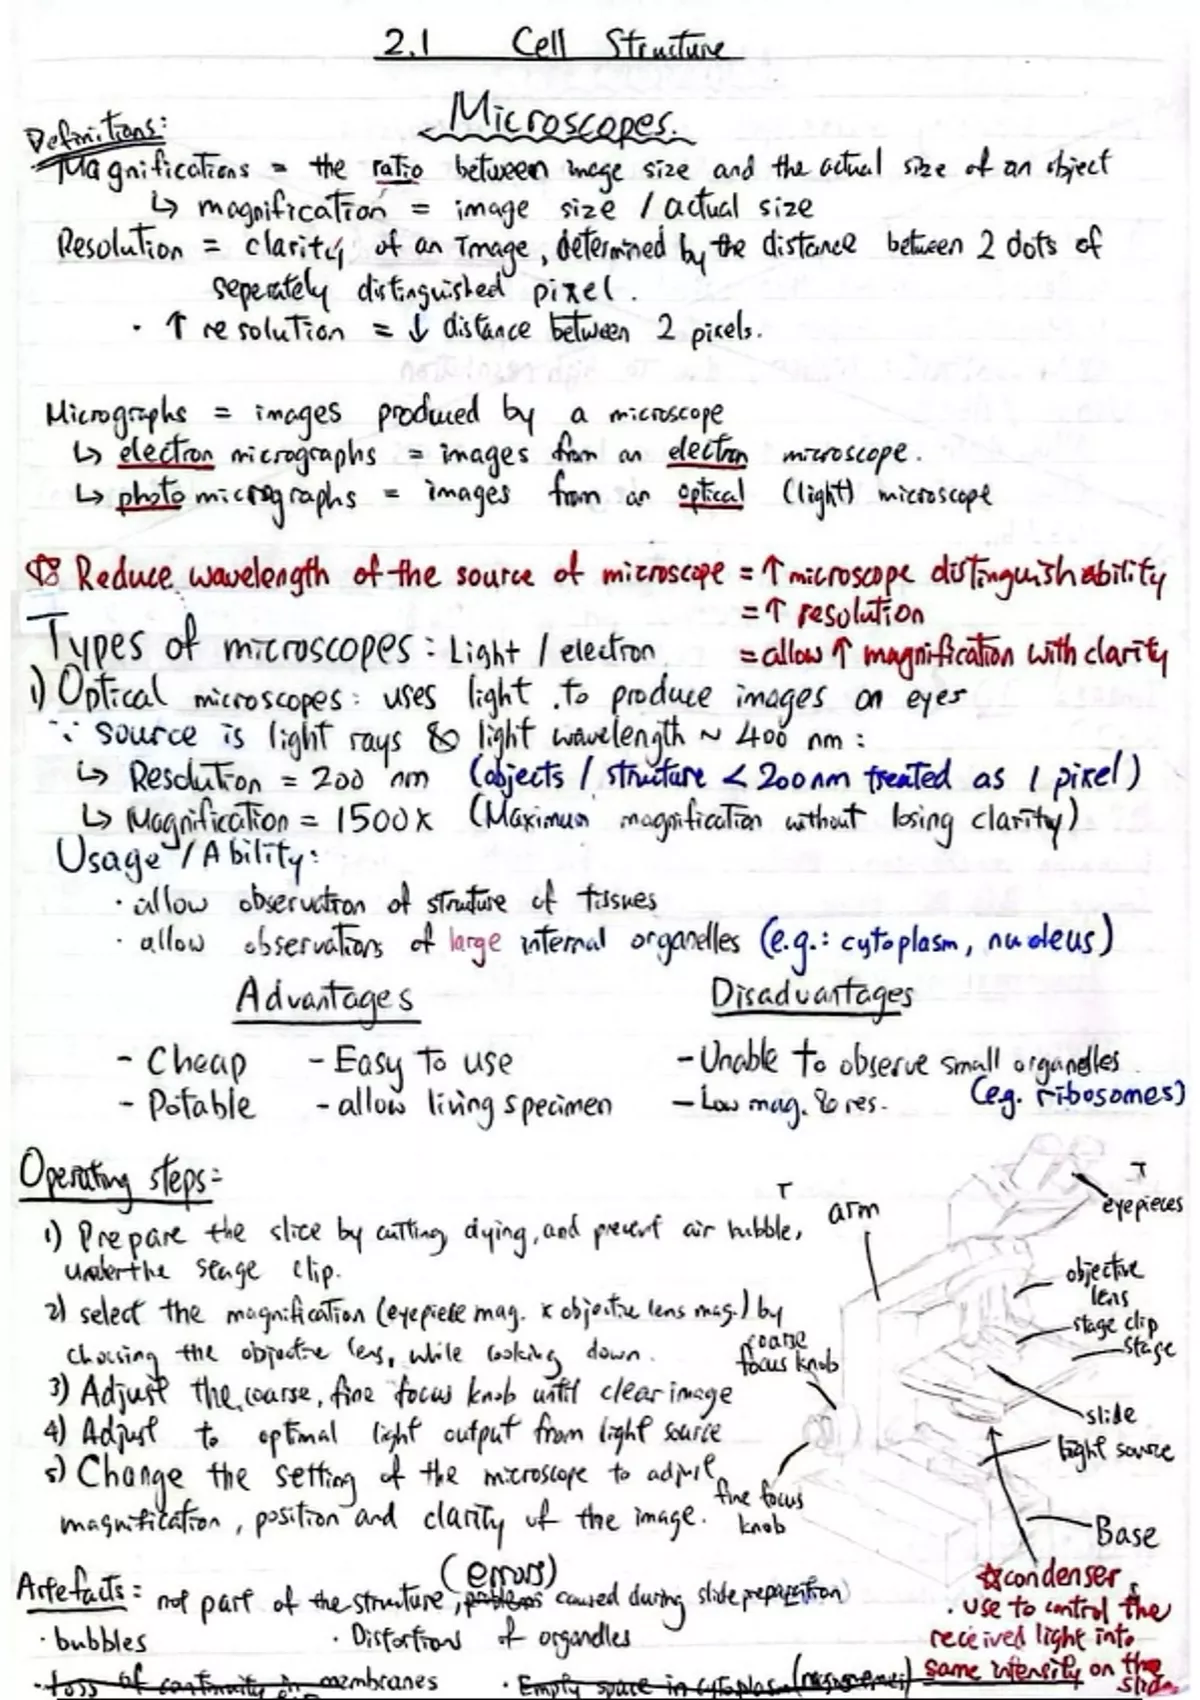 2.1 Cell Structure
Microscopes.
Definitions:
Magnifications = the ratio between image size and the actual size of an object
↳ magnification = image size / actual size
Resolution = clarity of an Image, determined by the distance between 2 dots of
seperately distinguished pixel.
· ↑ resolution = ↓ distance between 2 pixels.
Micrographs = images produced by a microscope
↳ electron micrographs = images from an electron microscope.
↳ photo micrographs = images from an optical (light) microscope
Reduce wavelength of the source of microscope = ↑ microscope distinguishability
= ↑ resolution
= allow ↑ magnification with clarity
Types of microscopes: Light / electron
1) Optical microscopes: uses light to produce images on eyes
∵ source is light rays & light wavelength ~ 400 nm :
↳ Resolution = 200 nm (objects / structure < 200nm treated as 1 pixel)
↳ Magnification = 1500x (Maximum magnification without losing clarity)
Usage / Ability:
· allow observation of struture of tissues
· allow observations of large internal organelles (e.g.: cytoplasm, nucleus)
Advantages Disadvantages
- Cheap - Easy to use - Unable to observe small organelles
- Potable - allow living specimen - Low mag. & res. (e.g. ribosomes)
Operating steps:
1) Prepare the slice by cutting, dying, and prevent air bubble,
under the stage clip.
2) select the magnification (eyepiece mag. x objective lens mag.) by
choosing the objective lens, while looking down.
3) Adjust the coarse, fine focus knob until clear image
4) Adjust to optimal light output from light source
5) Change the setting of the microscope to adjust
magnification, position and clarity of the image.
arm
eyepieces
objective
lens
stage clip
stage
coarse
focus knob
slide
light source
fine focus
knob
Base
☆condenser
· use to control the
received light into
same intensity on the
slide
(errors)
Artefacts: not part of the structure, problems caused during slide preparation
· bubbles · Distortions of organelles
· Loss of continuity in membranes · Empty space in cytoplasm